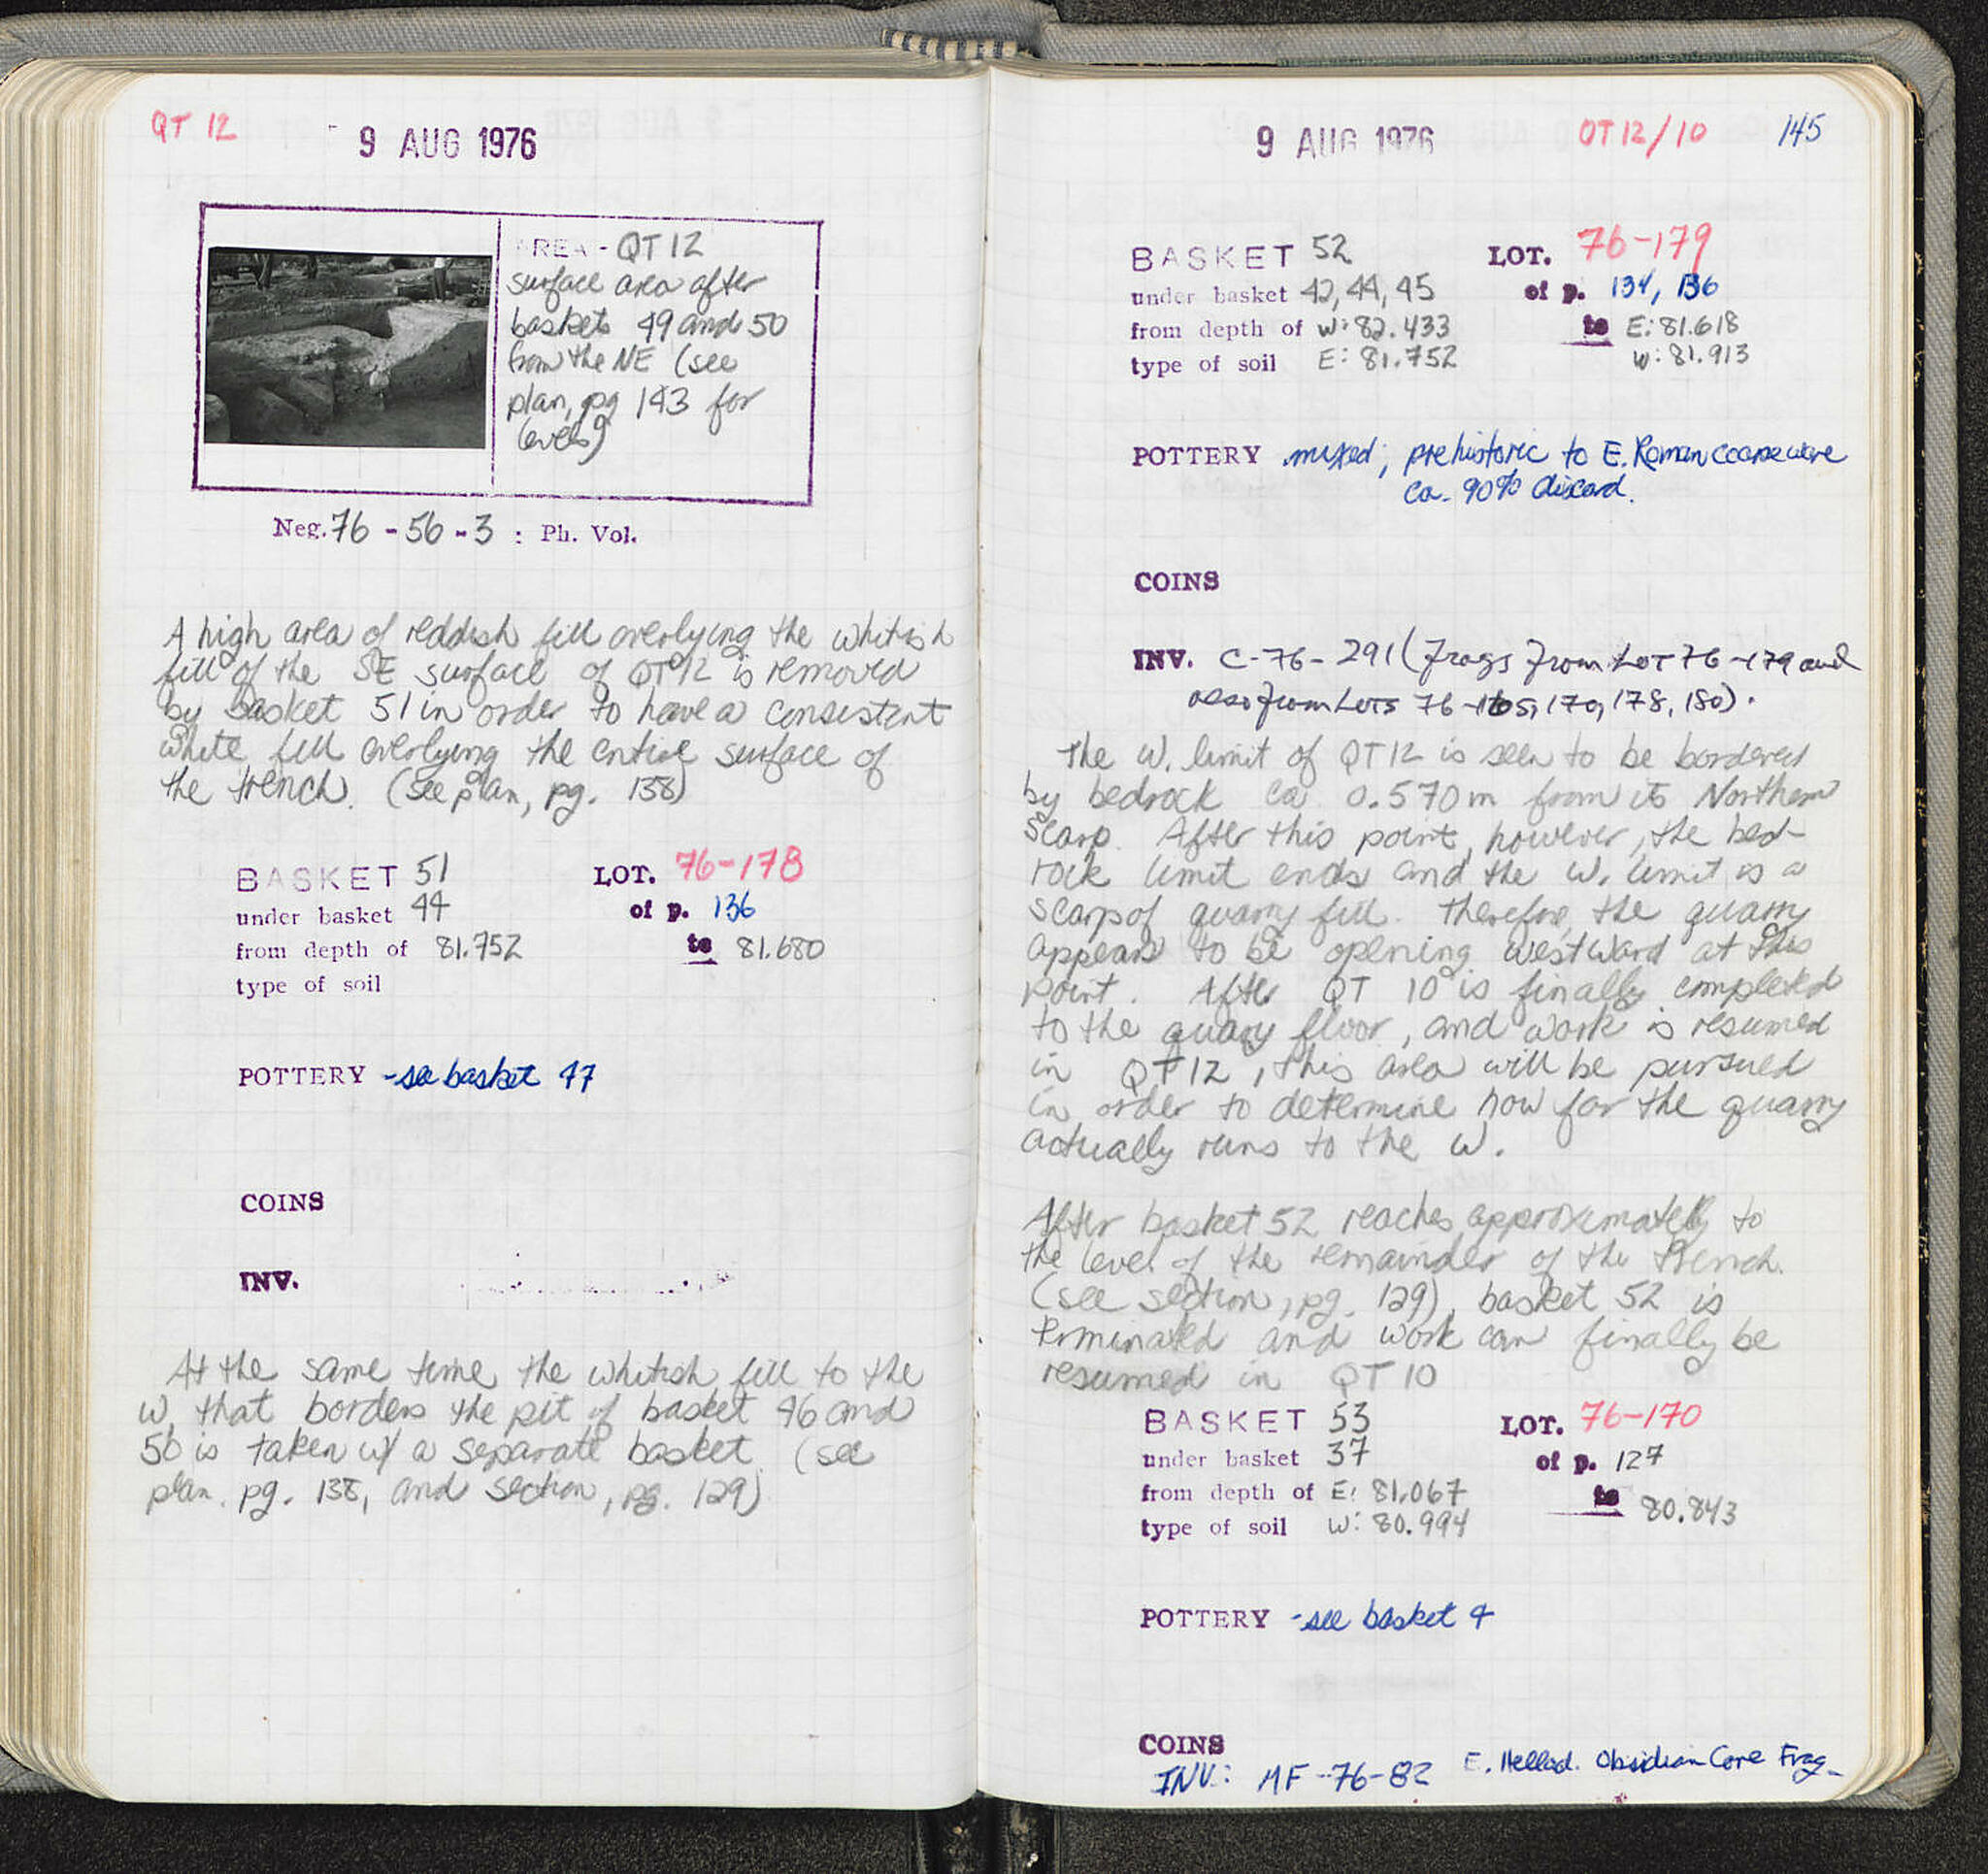 QT 12
9 AUG 1976
AREA - QT 12
surface area after
baskets 49 and 50
from the NE (see
plan, pg 143 for
levels)
Neg. 76 - 56 - 3 : Ph. Vol.
A high area of reddish fill overlying the whitish
fill of the SE surface of QT 12 is removed
by basket 51 in order to have a consistent
white fill overlying the entire surface of
the trench. (see plan, pg. 138)
BASKET 51 LOT. 76-178
under basket 44 of p. 136
from depth of 81.752 to 81.680
type of soil
POTTERY - see basket 47
COINS
INV.
At the same time the whitish fill to the
W. that borders the pit of basket 46 and
50 is taken w/ a separate basket. (see
plan. pg. 138, and section, pg. 129)
9 AUG 1976 QT 12/10 145
BASKET 52 LOT. 76-179
under basket 42, 44, 45 of p. 134, 136
from depth of W: 82.433 to E: 81.618
type of soil E: 81.752 W: 81.913
POTTERY mixed; prehistoric to E. Roman coarse ware
ca. 90% discard.
COINS
INV. C-76-291 (frags from Lot 76-179 and
also from Lots 76-165, 170, 178, 180).
The W. limit of QT 12 is seen to be bordered
by bedrock ca 0.570 m from its Northern
Scarp. After this point, however, the bed-
rock limit ends and the W. limit is a
scarp of quarry fill. Therefore, the quarry
appears to be opening westward at this
point. After QT 10 is finally completed
to the quary floor, and work is resumed
in QT 12, this area will be pursued
in order to determine how far the quarry
actually runs to the W.
After basket 52 reaches approximately to
the level of the remainder of the trench.
(see section, pg. 129), basket 52 is
terminated and work can finally be
resumed in QT 10
BASKET 53 LOT. 76-170
under basket 37 of p. 127
from depth of E: 81.067 to 80.843
type of soil W: 80.994
POTTERY - see basket 4
COINS
INV.: MF-76-82 E. Hellad. Obsidian Core Frag.